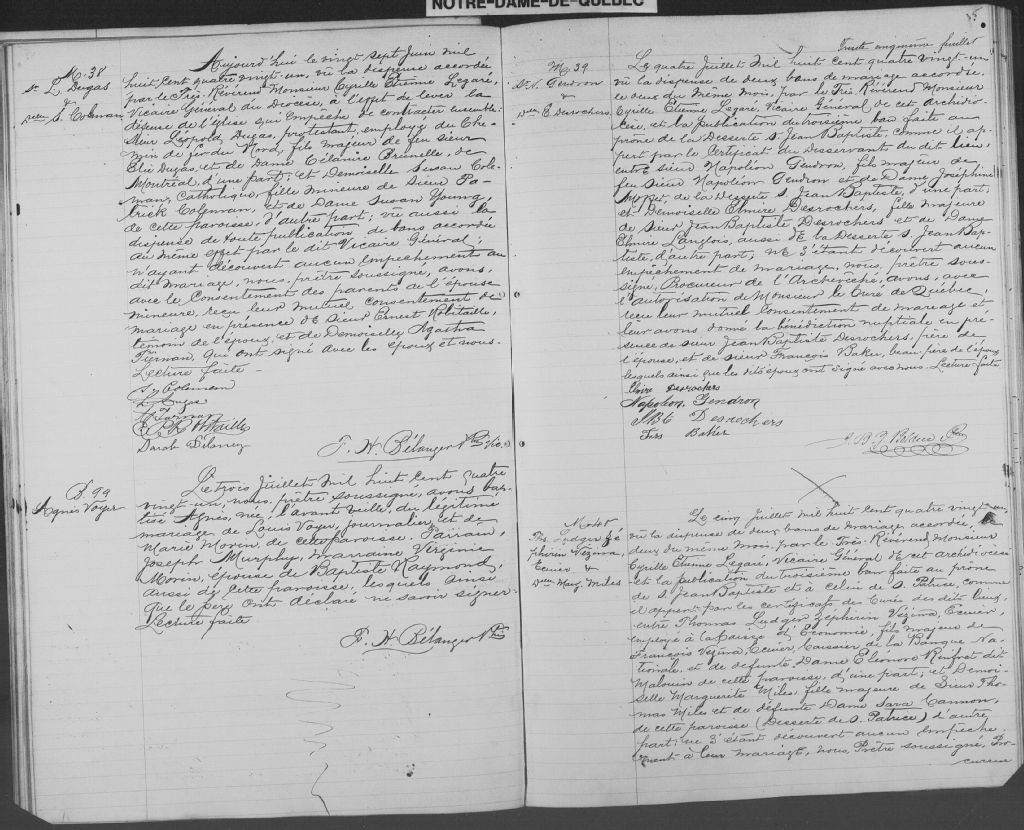 NOTRE-DAME-DE-QUÉBEC
M. 38
Sr. L. Dugas
&
Delle S. Coleman
Aujourd'hui le vingt sept Juin mil
huit cent quatre vingt-un, vu la dispense accordée
par le Très-Révérend Monsieur Cyrille Etienne Legaré,
Vicaire Général du Diocèse, à l'effet de lever la
défense de l'église qui empêche de contracter ensemble
Sieur Leopold Dugas, protestant, employé du Che-
min de fer du Nord, fils majeur de feu sieur
Elie Dugas, et de Dame Célanire Brunelle, de
Montréal, d'une part; et Demoiselle Susan Cole-
man, Catholique, fille mineure de Sieur Pa-
trick Coleman, et de Dame Susan Young,
de cette paroisse, d'autre part; vu aussi la
dispense de toute publication de bans accordée
au même effet par le dit Vicaire Général;
n'ayant découvert aucun empêchement au
dit mariage, nous, prêtre soussigné, avons,
avec le Consentement des parents de l'épouse
mineure, reçu leur mutuel consentement de
mariage en présence de Sieur Ernest Robitaille,
témoin de l'époux, et de Demoiselle Agatha
Tiernan, qui ont signé avec les époux et nous.
Lecture faite -
Coleman
L. Dugas
Tiernan
Robitaille
Sarah Délaney
F. H. Bélanger Ptre Vic.
B. 99
Agnès Voyer
Le trois Juillet mil huit cent quatre
vingt-un, nous, prêtre soussigné, avons bap-
tisé Agnès, née l'avant veille, du légitime
mariage de Louis Voyer, journalier, et de
Marie Morin, de cette paroisse. Parrain,
Joseph Murphy, marraine Virginie
Morin, épouse de Baptiste Raymond,
aussi de cette paroisse, lesquels ainsi
que le père ont déclaré ne savoir signer.
Lecture faite
F. H. Bélanger Ptre
Trente cinquième feuillet
M. 39
Sr. N. Gendron
&
Delle E. Desrochers
Le quatre Juillet mil huit cent quatre vingt-un
vu la dispense de deux bans de mariage accordée,
le deux du même mois, par le Très Révérend Monsieur
Cyrille Etienne Legaré, Vicaire Général de cet archidio-
cèse, et la publication du troisième ban faite au
prône de la Desserte S. Jean Baptiste, comme il ap-
pert par le Certificat du Desservant du dit lieu,
entre sieur Napoléon Gendron, fils majeur de
feu sieur Napoléon Gendron et de Dame Joséphine
de la Desserte S. Jean Baptiste, d'une part,
et Demoiselle Elmire Desrochers, fille majeure
de sieur Jean Baptiste Desrochers et de Dame
Elmire Langlois, aussi de la Desserte S. Jean Bap-
tiste, d'autre part; ne s'étant découvert aucun
empêchement de mariage, nous, prêtre sous-
signé, Procureur de l'Archevêché, avons, avec
l'autorisation de Monsieur le Curé de Québec,
reçu leur mutuel Consentement de mariage et
leur avons donné la bénédiction nuptiale en pré-
sence de sieur Jean Baptiste Desrochers, père de
l'épouse, et de sieur François Baker, beau-père de l'époux
lesquels ainsi que les dits époux ont signé avec nous. Lecture faite
Elmire Desrochers
Napoléon Gendron
J. Bte Desrochers
Frs Baker
M. 40
Ths Ludger Zé
phirin Vézina,
Ecuier &
Delle Marg. Miles
Le cinq Juillet mil huit cent quatre vingt-un,
vu la dispense de deux bans de mariage accordée, le
deux du même mois, par le Très Révérend Monsieur
Cyrille Etienne Legaré, Vicaire Général de cet archidiocèse
et la publication du troisième ban faite au prône
de S. Jean Baptiste et à celui de S. Patrice, comme
il appert par les certificats des Curés des dits lieux,
entre Thomas Ludger Zéphirin Vézina, Ecuier,
employé à la Caisse d'Economie, fils majeur de
François Vézina, Ecuier, Caissier de la Banque Na-
tionale, et de défunte Dame Eléonore Rinfret dit
Malouin de cette paroisse, d'une part; et Demoi-
selle Marguerite Miles, fille majeure de Sieur Tho-
mas Miles et de défunte Dame Sara Cannon,
de cette paroisse (Desserte de S. Patrice) d'autre
part; ne s'étant découvert aucun empêche-
ment à leur mariage, nous, Prêtre soussigné, Pro-
cureur